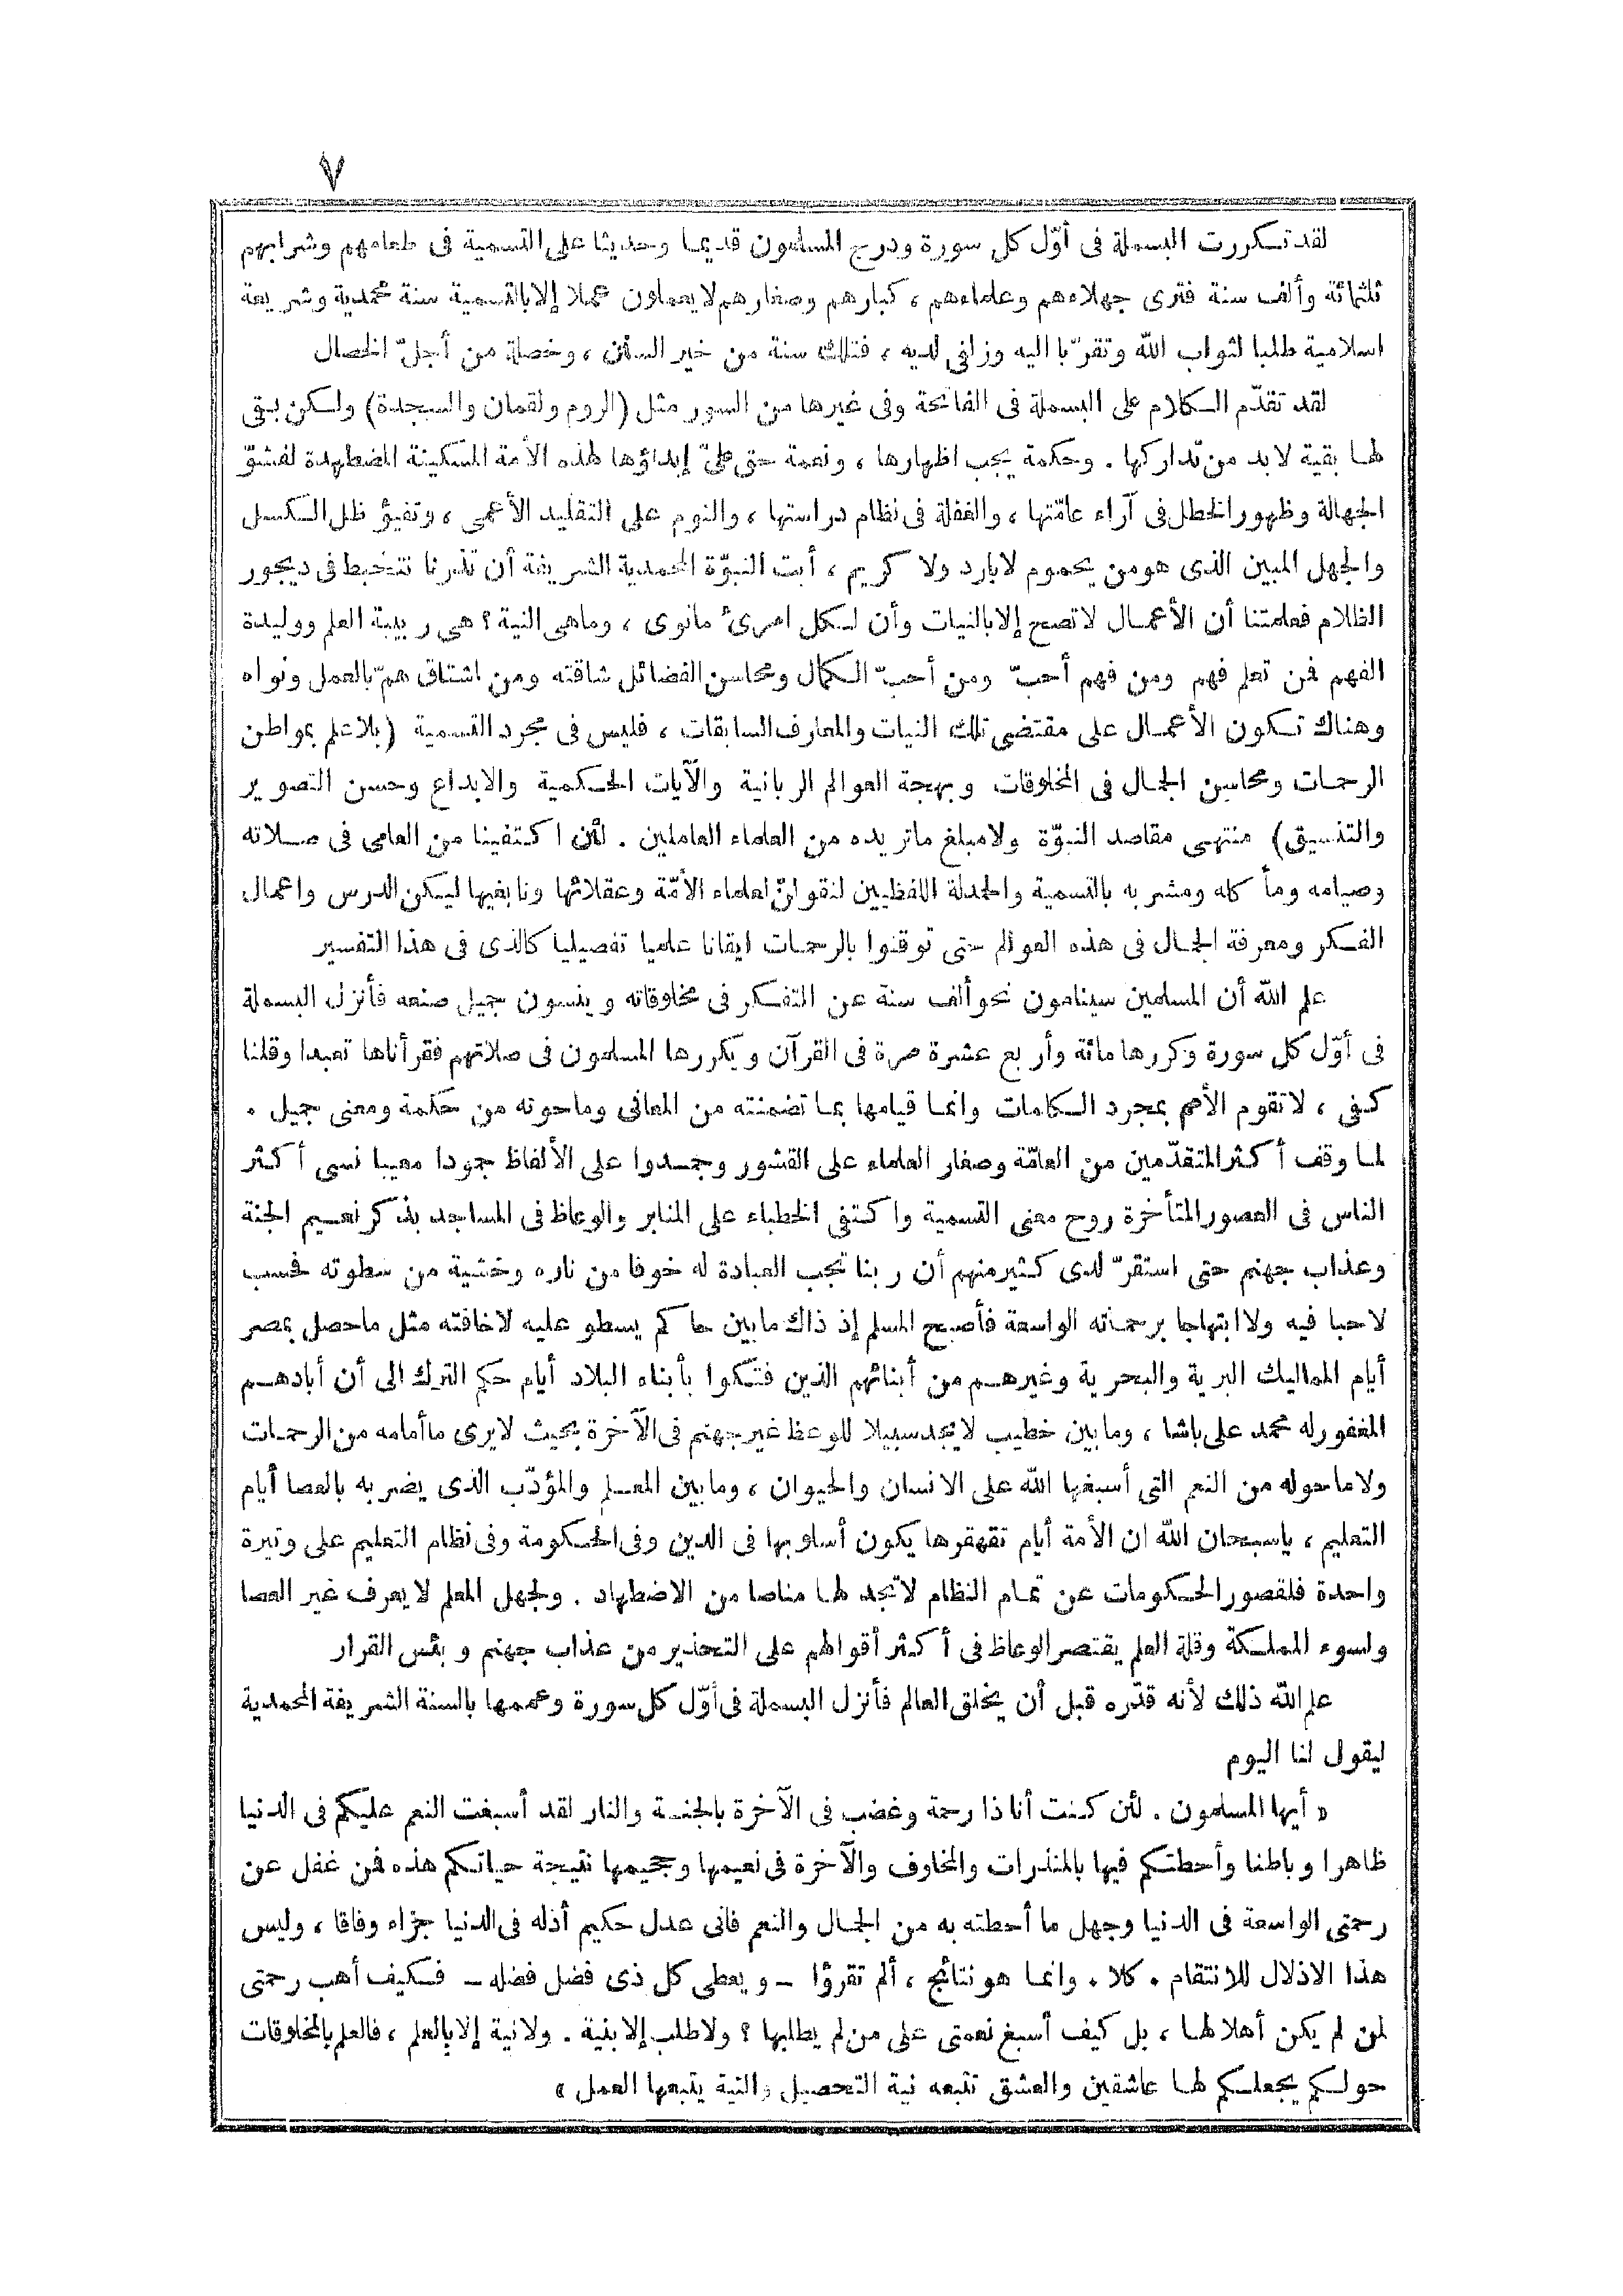 ٧
لقد تكررت البسملة فى أوّل كل سورة ودرج المسلمون قديما وحديثا على التسمية فى طعامهم وشرابهم
ثلثمائة وألف سنة فترى جهلاءهم وعلماءهم ، كبارهم وصغارهم لا يعملون عملا إلا بالتسمية سنة محمدية وشريعة
اسلامية طلبا لثواب الله وتقرّبا اليه وزلفى لديه ، فتلك سنة من خير السنن ، وخصلة من أجلّ الخصال
لقد تقدّم الكلام على البسملة فى الفاتحة وفى غيرها من السور مثل (الروم ولقمان والسجدة) ولكن بقى
لها بقية لابد من تداركها . وحكمة يجب اظهارها ، ونعمة حق علىّ إبداؤها لهذه الأمة المسكينة المضطهدة لفشوّ
الجهالة وظهور الخطل فى آراء عامّتها ، والغفلة فى نظام دراستها ، والنوم على التقليد الأعمى ، وتفيؤ ظل الكسل
والجهل المبين الذى هو من يحموم لابارد ولا كريم ، أبت النبوّة المحمدية الشريفة أن تذرنا نتخبط فى ديجور
الظلام فعلمتنا أن الأعمال لا تصح إلا بالنيات وأن لكل امرئ مانوى ، وماهى النية ؟ هى ربيبة العلم ووليدة
الفهم فمن تعلم فهم ومن فهم أحبّ ومن أحبّ الكمال ومحاسن الفضائل شاقته ومن اشتاق همّ بالعمل ونواه
وهناك تكون الأعمال على مقتضى تلك النيات والمعارف السابقات ، فليس فى مجرد التسمية (بلا علم بمواطن
الرحمات ومحاسن الجمال فى المخلوقات وبهجة العوالم الربانية والآيات الحكمية والابداع وحسن التصوير
والتنسيق) منتهى مقاصد النبوّة ولا مبلغ ماتريده من العلماء العاملين . لئن اكتفينا من العامى فى صلاته
وصيامه ومأكله ومشربه بالتسمية والحمدلة اللفظيين لنقولنّ لعلماء الأمّة وعقلائها ونابغيها ليكن الدرس واعمال
الفكر ومعرفة الجمال فى هذه العوالم حتى توقنوا بالرحمات ايقانا علميا تفصيليا كالذى فى هذا التفسير
علم الله أن المسلمين سينامون نحو ألف سنة عن التفكر فى مخلوقاته وينسون جميل صنعه فأنزل البسملة
فى أوّل كل سورة وكررها مائة وأربع عشرة مرة فى القرآن ويكررها المسلمون فى صلاتهم فقرأناها تعبدا وقلنا
كفى ، لا تقوم الأمم بمجرد الكلمات وانما قيامها بما تضمنته من المعانى وماحوته من حكمة ومعنى جميل .
لما وقف أكثر المتقدّمين من العامّة وصغار العلماء على القشور وجمدوا على الألفاظ جمودا معيبا نسى أكثر
الناس فى العصور المتأخرة روح معنى التسمية واكتفى الخطباء على المنابر والوعاظ فى المساجد بذكر نعيم الجنة
وعذاب جهنم حتى استقرّ لدى كثير منهم أن ربنا تجب العبادة له خوفا من ناره وخشية من سطوته فحسب
لا حبا فيه ولا ابتهاجا برحماته الواسعة فأصبح المسلم إذ ذاك مابين حاكم يسطو عليه لاخافته مثل ماحصل بمصر
أيام المماليك البرية والبحرية وغيرهم من أبنائهم الذين فتكوا بأبناء البلاد أيام حكم الترك الى أن أبادهم
المغفور له محمد على باشا ، ومابين خطيب لا يجد سبيلا للوعظ غير جهنم فى الآخرة بحيث لايرى ماأمامه من الرحمات
ولا ماحوله من النعم التى أسبغها الله على الانسان والحيوان ، ومابين المعلم والمؤدّب الذى يضربه بالعصا أيام
التعليم ، ياسبحان الله ان الأمة أيام تقهقرها يكون أسلوبها فى الدين وفى الحكومة وفى نظام التعليم على وتيرة
واحدة فلقصور الحكومات عن تمام النظام لا تجد لها مناصا من الاضطهاد . ولجهل المعلم لا يعرف غير العصا
ولسوء المملكة وقلة العلم يقتصر الوعاظ فى أكثر أقوالهم على التحذير من عذاب جهنم وبئس القرار
علم الله ذلك لأنه قدّره قبل أن يخلق العالم فأنزل البسملة فى أوّل كل سورة وعممها بالسنة الشريفة المحمدية
ليقول لنا اليوم
« أيها المسلمون . لئن كنت أنا ذا رحمة وغضب فى الآخرة بالجنة والنار لقد أسبغت النعم عليكم فى الدنيا
ظاهرا وباطنا وأحطتكم فيها بالمنذرات والمخاوف والآخرة فى نعيمها وجحيمها نتيجة حياتكم هذه فمن غفل عن
رحمتى الواسعة فى الدنيا وجهل ما أحطته به من الجمال والنعم فانى عدل حكيم أذله فى الدنيا جزاء وفاقا ، وليس
هذا الاذلال للانتقام . كلا . وانما هو نتائج ، ألم تقرؤا - ويعطى كل ذى فضل فضله - فكيف أهب رحمتى
لمن لم يكن أهلا لها ، بل كيف أسبغ نعمتى على من لم يطلبها ؟ ولا طلب إلا بنية . ولانية إلا بالعلم ، فالعلم بالمخلوقات
حولكم يجعلكم لها عاشقين والعشق تتبعه نية التحصيل والنية يتبعها العمل »